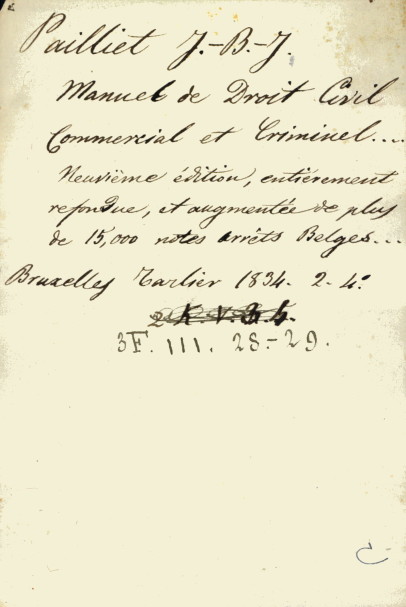 Pailliet J.-B.-J.
Manuel de Droit Civil
Commercial et Criminel...
Neuvième édition, entièrement
refondue, et augmentée de plus
de 15,000 notes arrêts Belges...
Bruxelles Tarlier 1834. 2. 4°
3F. III. 28-29.